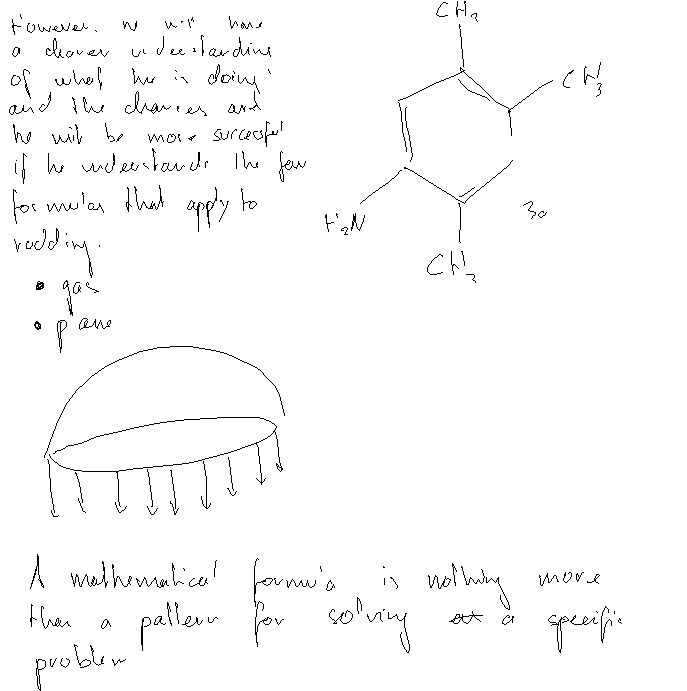 However, he will have
a clearer understanding
of what he is doing
and the chances are
he will be more successful
if he understands the few
formulas that apply to
rodding.
• gas
• pane
CH3
CH3
H2N
CH3
3a
A mathematical formula is nothing more
than a pattern for solving a specific
problem